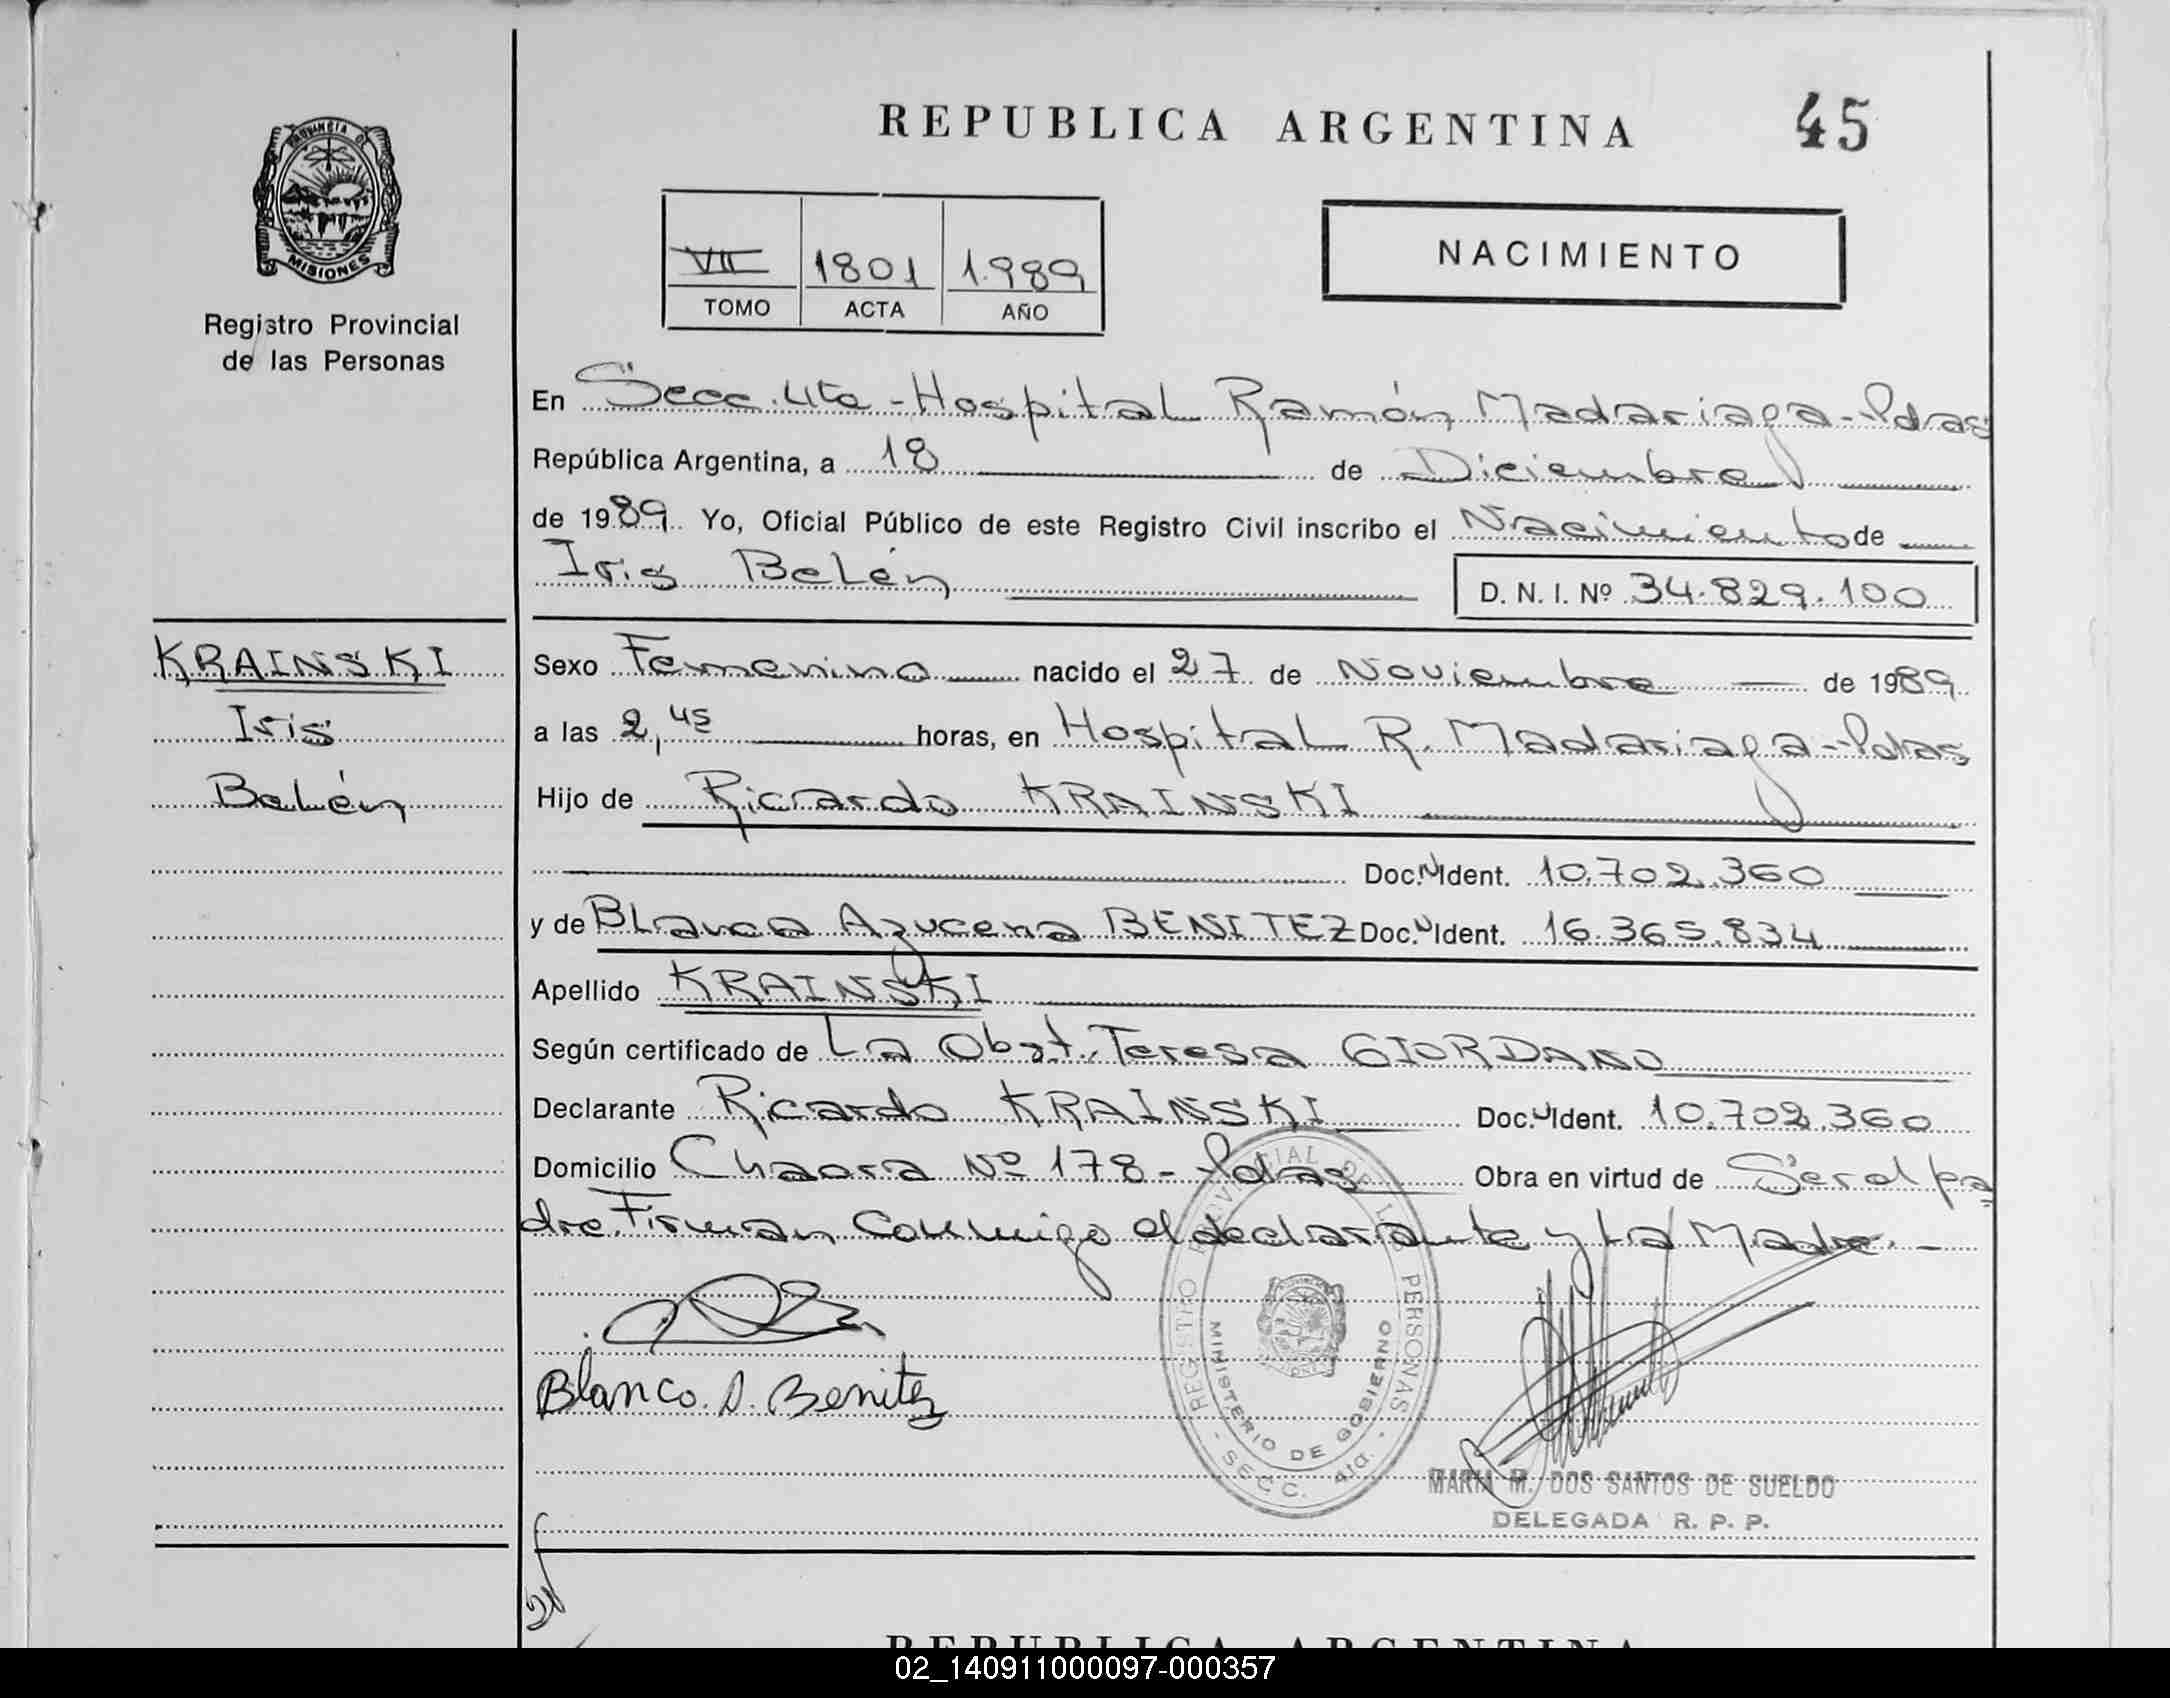 REPUBLICA ARGENTINA 45
PROVINCIA D
MISIONES
Registro Provincial
de las Personas
VII 1801 1.989
TOMO ACTA AÑO
NACIMIENTO
En Secc. 4ta - Hospital Ramón Madariaga - Pdas
República Argentina, a 18 de Diciembre
de 1989. Yo, Oficial Público de este Registro Civil inscribo el Nacimiento de
Iris Belén D. N. I. Nº 34.829.100
KRAINSKI
Iris
Belén
Sexo Femenino nacido el 27 de Noviembre de 1989
a las 2,45 horas, en Hospital R. Madariaga - Pdas
Hijo de Ricardo KRAINSKI
Doc. N Ident. 10.702.360
y de Blanca Azucena BENITEZ Doc. N Ident. 16.365.834
Apellido KRAINSKI
Según certificado de La Obst. Teresa GIORDANO
Declarante Ricardo KRAINSKI Doc. N Ident. 10.702.360
Domicilio Chacra Nº 178 - Pdas Obra en virtud de Ser el pa
dre. Firman Conmigo el declarante y La Madre. -
Blanca. A. Benitez
REGISTRO PROVINCIAL DE LAS PERSONAS
MINISTERIO DE GOBIERNO
- SECC. 4ta. -
MARIA M. DOS SANTOS DE SUELDO
DELEGADA R. P. P.
REPUBLICA ARGENTINA
02_140911000097-000357